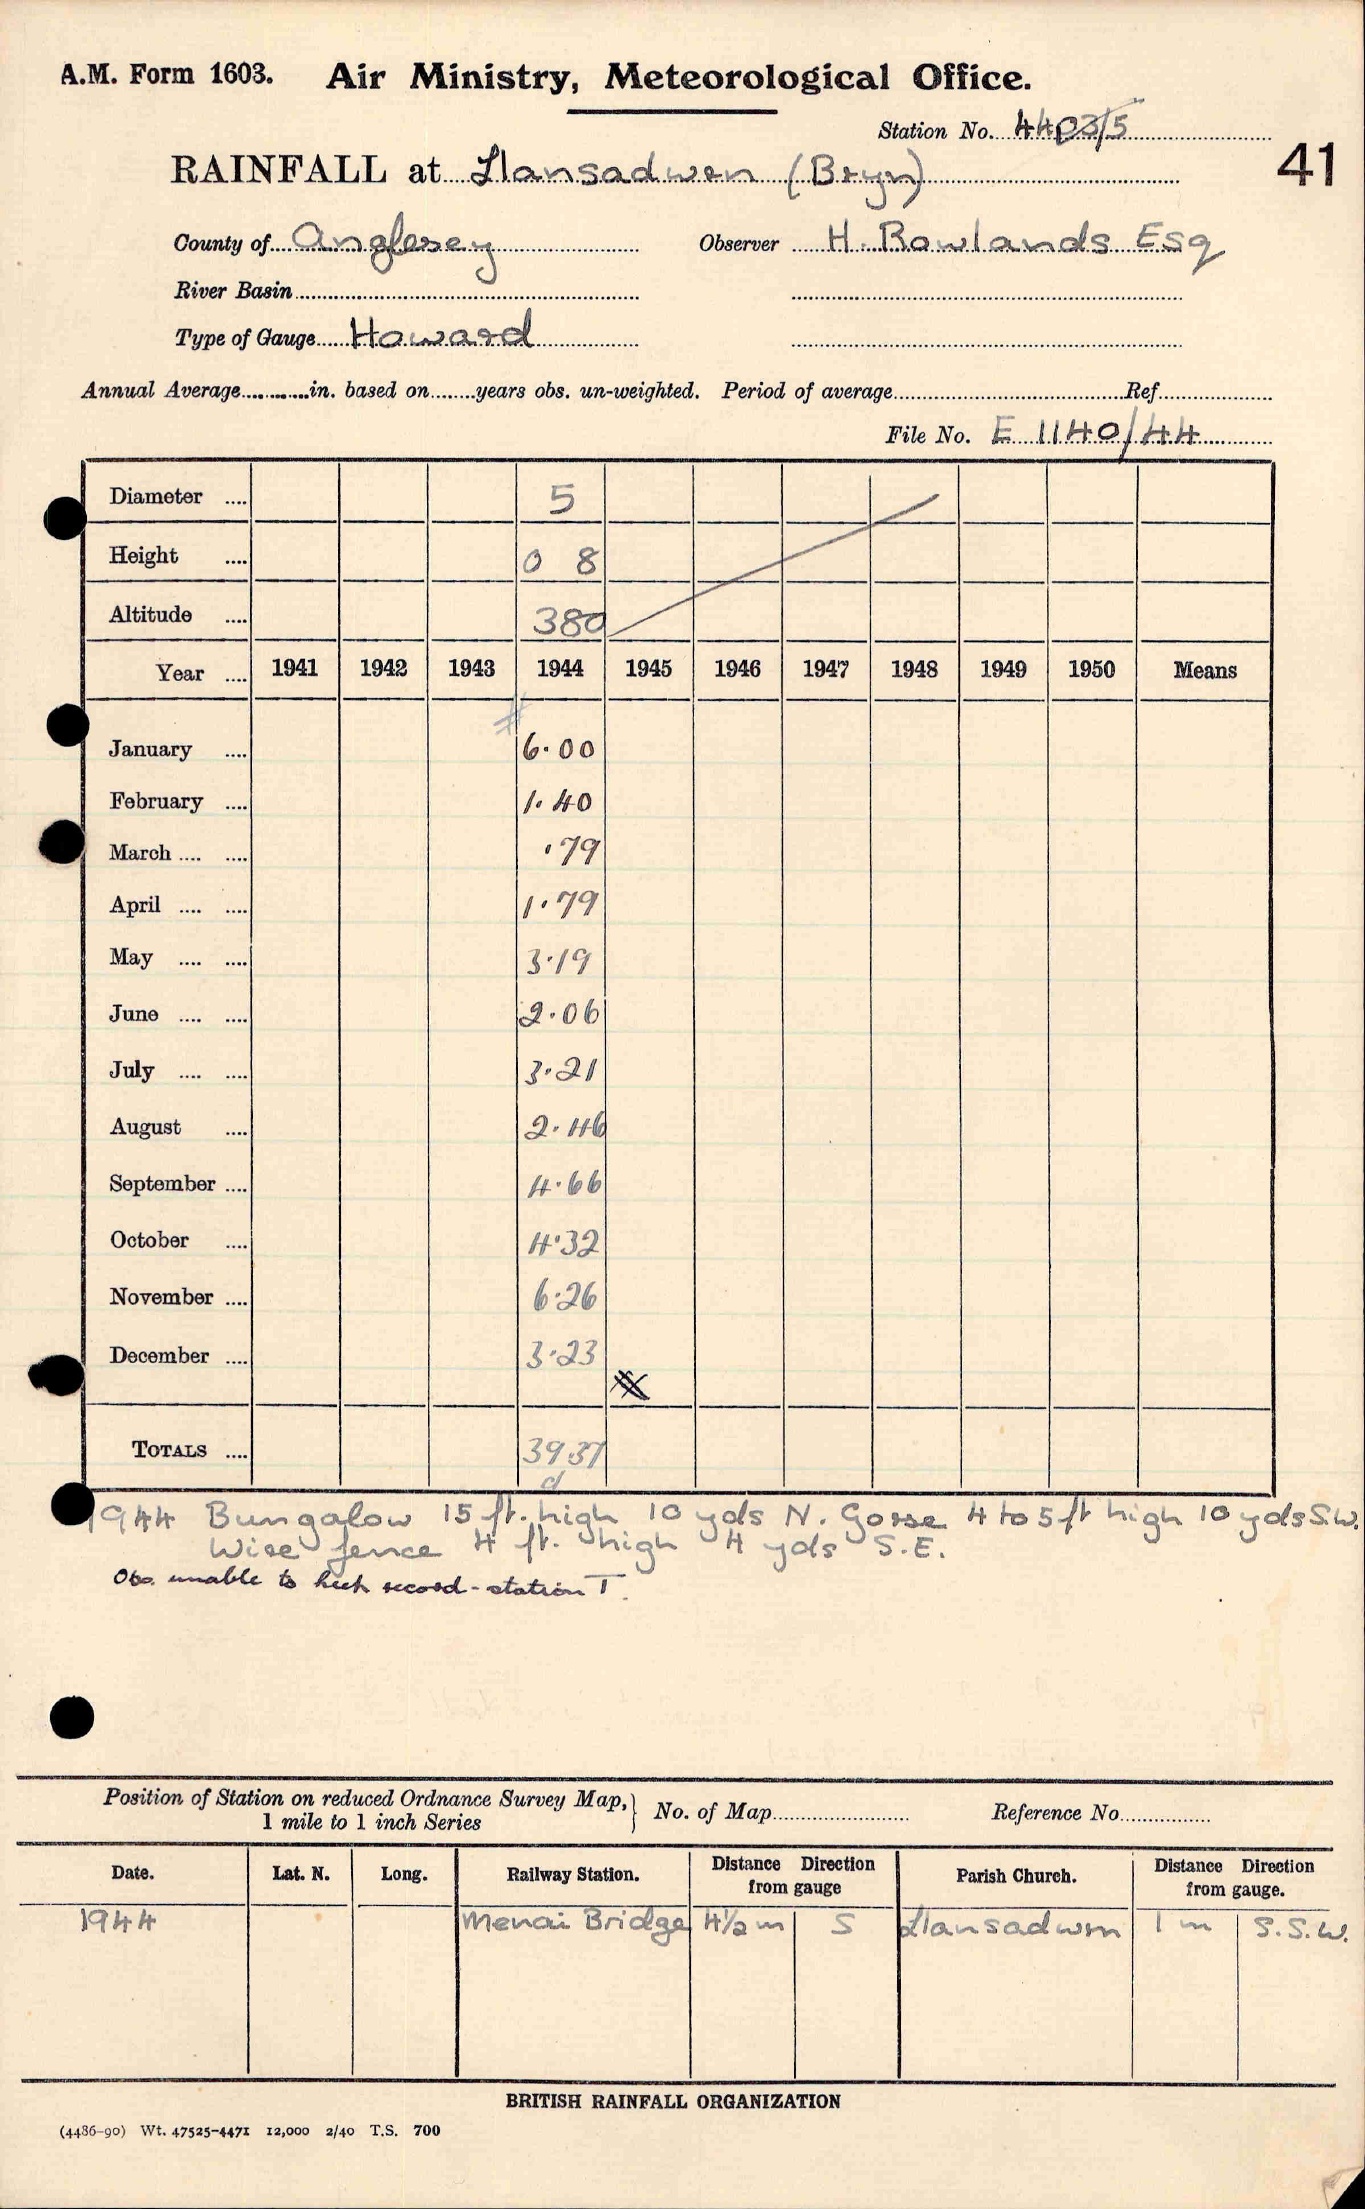 A.M. Form 1603. Air Ministry, Meteorological Office.
Station No. 4403/5
41
RAINFALL at Llansadwen (Bryn)
County of Anglesey Observer H. Rowlands Esq
River Basin
Type of Gauge Howard
Annual Average in. based on years obs. un-weighted. Period of average Ref
File No. E 1140/44
Diameter .... 5
Height .... 0 8
Altitude .... 380
Year .... 1941 1942 1943 1944 1945 1946 1947 1948 1949 1950 Means
January .... 6.00
February .... 1.40
March .... .... .79
April .... .... 1.79
May .... .... 3.19
June .... .... 2.06
July .... .... 3.21
August .... 2.46
September .... 4.66
October .... 4.32
November .... 6.26
December .... 3.23
TOTALS .... 39.37
d
1944 Bungalow 15 ft. high 10 yds N. Gorse 4 to 5 ft high 10 yds S.W.
Wire fence 4 ft. high 4 yds S.E.
Obs. unable to keep record - station T.
Position of Station on reduced Ordnance Survey Map, 1 mile to 1 inch Series } No. of Map Reference No.
Date. Lat. N. Long. Railway Station. Distance Direction from gauge Parish Church. Distance Direction from gauge.
1944 Menai Bridge 4½ m S Llansadwrn 1 m S.S.W.
BRITISH RAINFALL ORGANIZATION
(4486-90) Wt. 47525-4471 12,000 2/40 T.S. 700